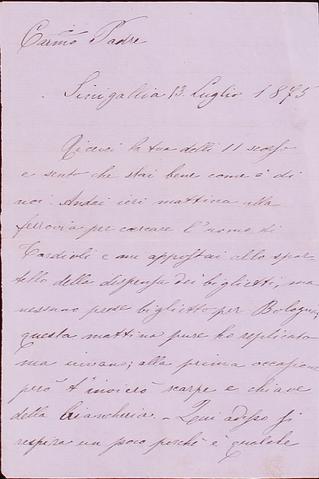 Carmo Padre
Sinigallia 13. Luglio 1875
Ricevei la tua delli 11 scorso
e sento che stai bene come è di
noi. Andai ieri mattina alla
ferrovia per cercare l'uomo di
e mi appostai allo spor-
tello della dispensa dei biglietti, ma
nessuno prese biglietto per Bologna;
questa mattina pure ho replicato
ma invano; alla prima occasione
però t'invierò scarpe e chiave
della biancheria. - Qui adesso si
respira un poco perchè è qualche